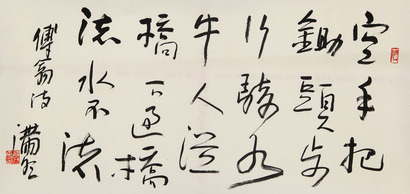 空手把
鋤頭步
行騎水
牛人從
橋上過橋
流水不流
傅翕詩